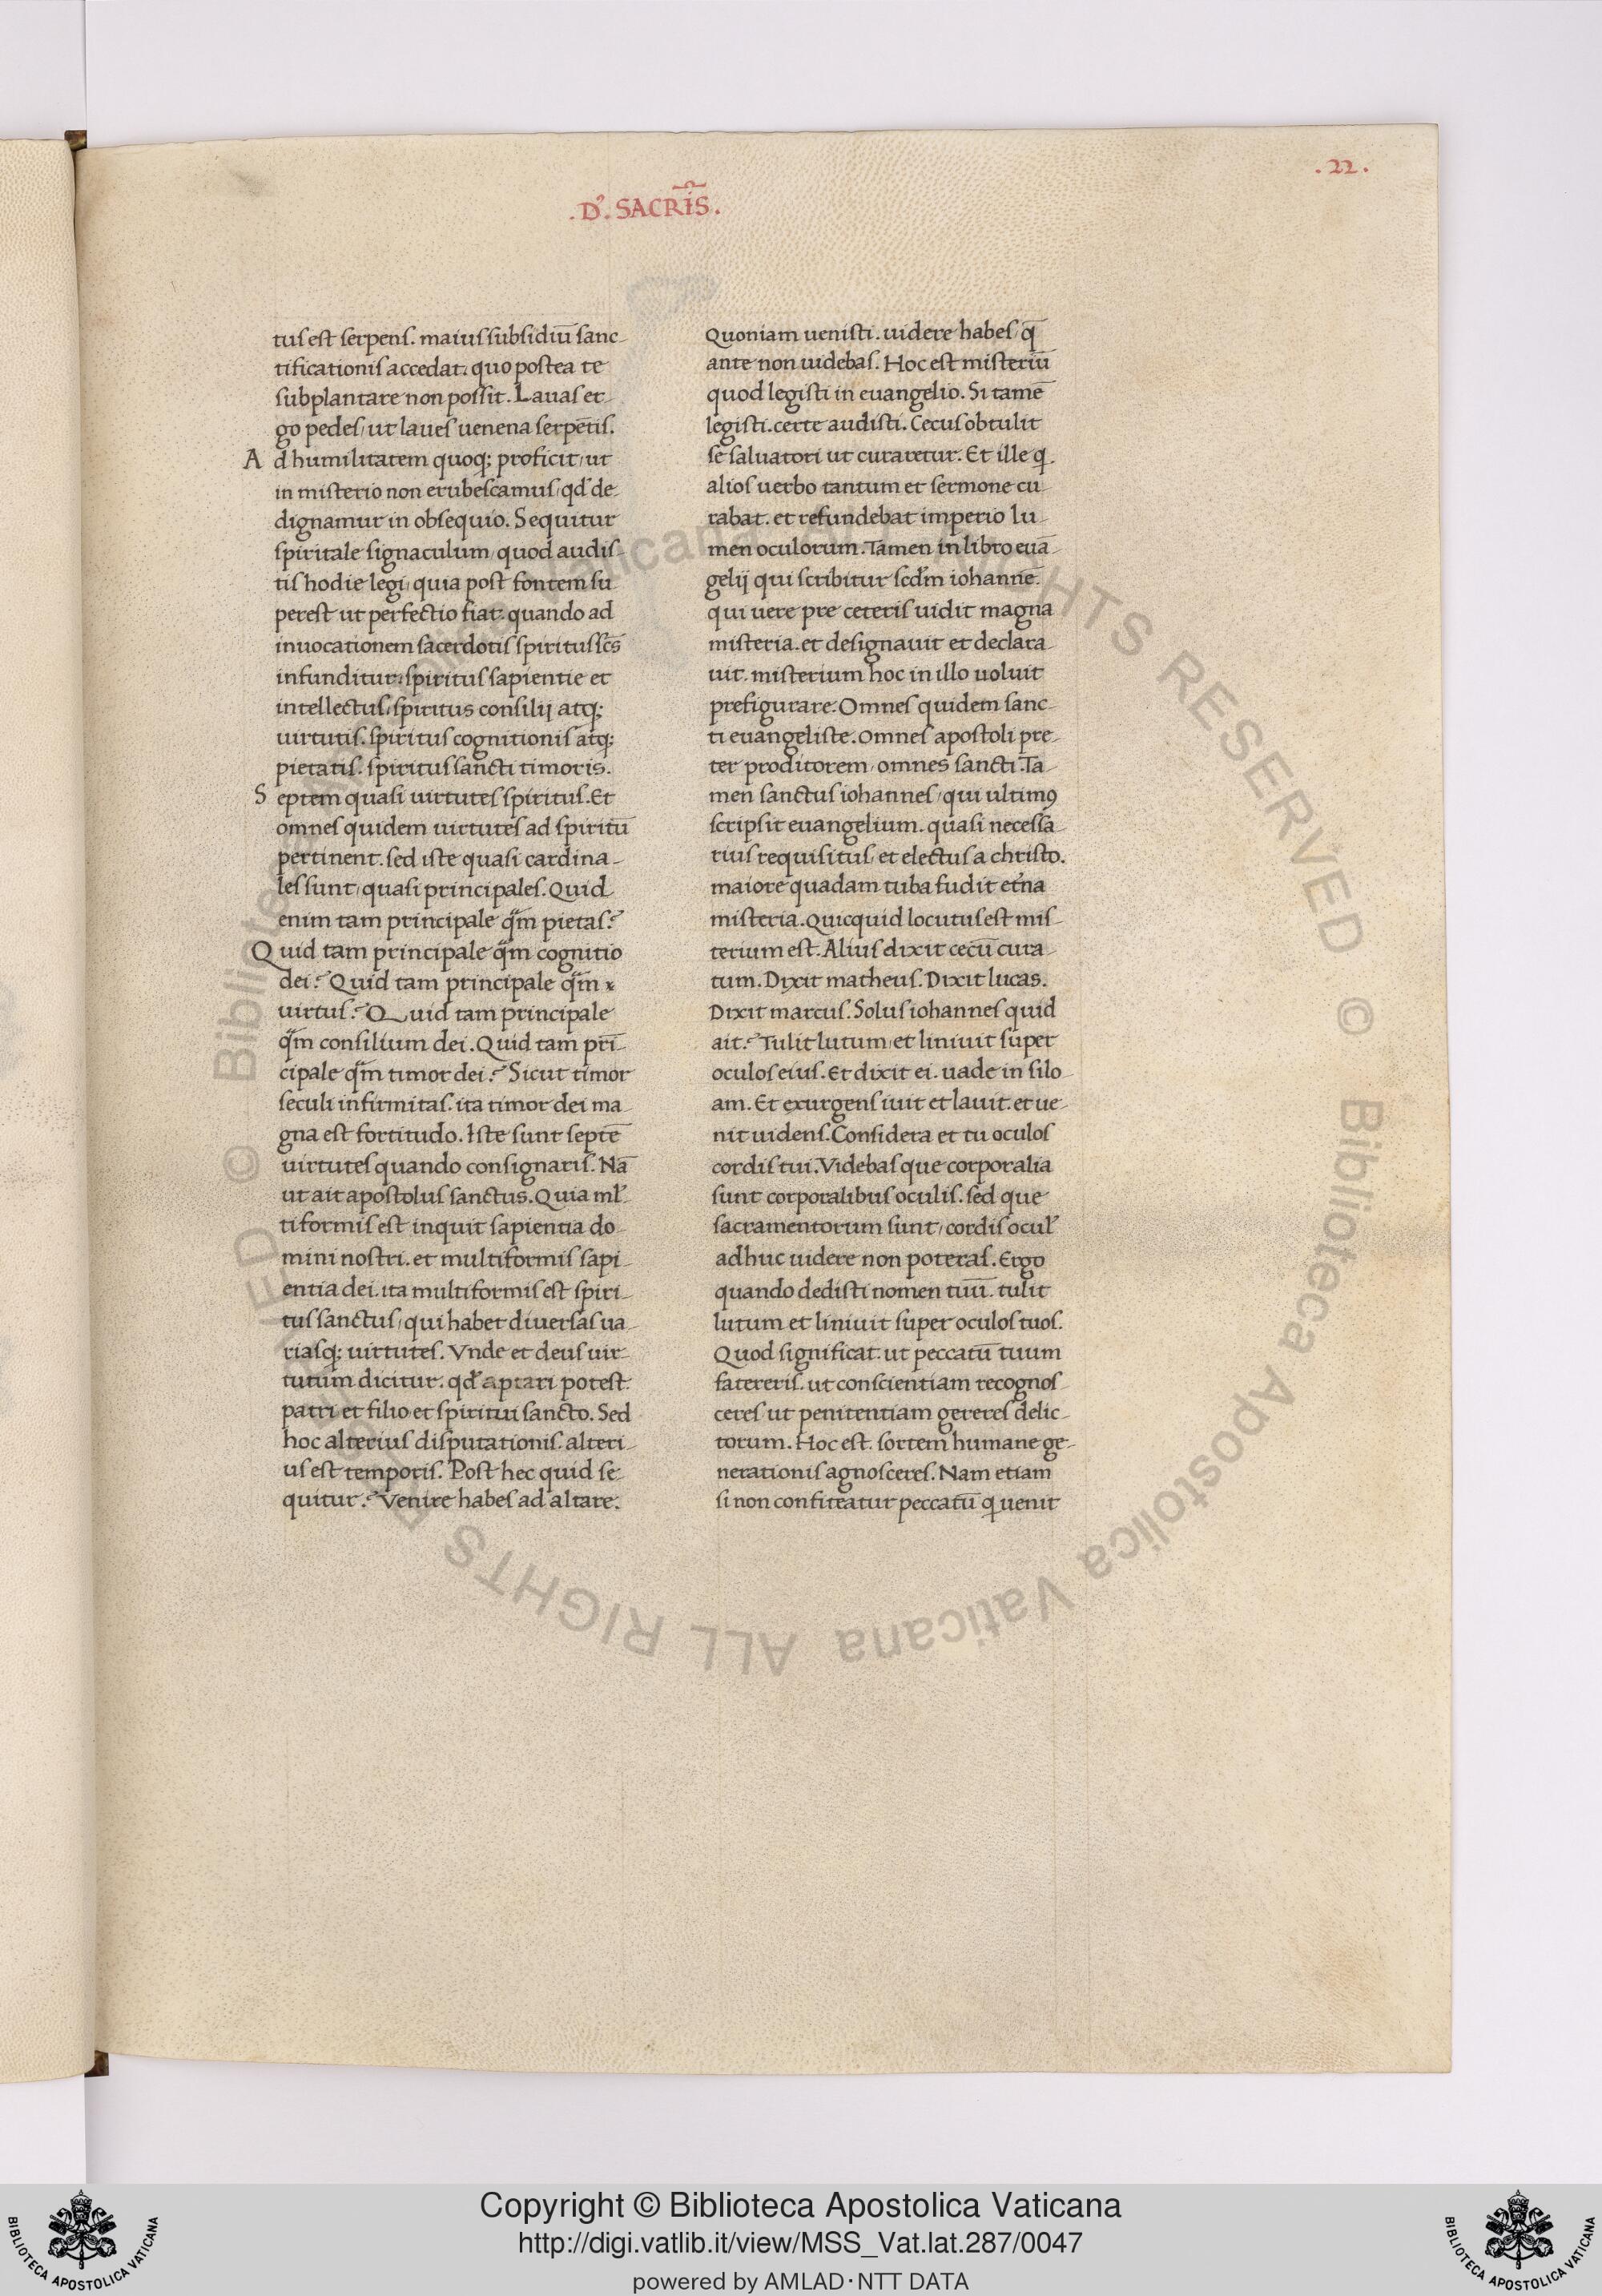 .22.
.D̾. SACRI̅S̅.
tus est serpens. maius subsidiū sanc-
tificationis accedat. quo postea te
subplantare non possit. Lauas er-
go pedes, ut laues uenena serpētis.
Ad humilitatem quoq; proficit, ut
in misterio non erubescamus, qd̾ de-
dignamur in obsequio. Sequitur
spiritale signaculum, quod audis-
tis hodie legi, quia post fontem su
perest ut perfectio fiat. quando ad
inuocationem sacerdotis spiritus scs̄
infunditur. spiritus sapientie et
intellectus, spiritus consilij atq;
uirtutis. spiritus cognitionis atq;
pietatis. spiritus sancti timoris.
Septem quasi uirtutes spiritus. Et
omnes quidem uirtutes ad spiritū
pertinent. sed iste quasi cardina-
les sunt, quasi principales. Quid
enim tam principale qm̄ pietas?
Quid tam principale qm̄ cognitio
dei? Quid tam principale qm̄
uirtus? Quid tam principale
qm̄ consilium dei. Quid tam prī-
cipale qm̄ timor dei? Sicut timor
seculi infirmitas. ita timor dei ma-
gna est fortitudo. Iste sunt septē
uirtutes quando consignaris. Nā
ut ait apostolus sanctus. Quia ml̾-
tiformis est inquit sapientia do-
mini nostri. et multiformis sapi-
entia dei. ita multiformis est spiri-
tus sanctus, qui habet diuersas ua-
riasq; uirtutes. Vnde et deus uir-
tutum dicitur. qd̾ aptari potest.
patri et filio et spiritui sancto. Sed
hoc alterius disputationis. alteri-
us est temporis. Post hec quid se-
quitur? Venire habes ad altare.
Quoniam uenisti. uidere habes, q̄
ante non uidebas. Hoc est misteriū
quod legisti in euangelio. Si tamē
legisti. certe audisti. Cecus obtulit
se saluatori ut curaretur. Et ille q.
alios uerbo tantum et sermone cu-
rabat. et refundebat imperio lu-
men oculorum. Tamen in libro euā-
gelij qui scribitur scd̄m iohannē.
qui uere pre ceteris uidit magna
misteria. et designauit et declara-
uit. misterium hoc in illo uoluit
prefigurare. Omnes quidem sanc-
ti euangeliste. Omnes apostoli pre-
ter proditorem, omnes sancti. Ta-
men sanctus iohannes, qui ultimꝰ
scripsit euangelium. quasi necessa-
rius requisitus, et electus a christo.
maiore quadam tuba fudit et̾na
misteria. Quicquid locutus est mis-
terium est. Alius dixit cecū cura-
tum. Dixit matheus. Dixit lucas.
Dixit marcus. Solus iohannes quid
ait? Tulit lutum, et liniuit super
oculos eius. Et dixit ei. uade in silo-
am. Et exurgens iuit et lauit. et ue-
nit uidens. Considera et tu oculos
cordis tui. Videbas que corporalia
sunt corporalibus oculis. sed que
sacramentorum sunt, cordis ocul̾
adhuc uidere non poteras. Ergo
quando dedisti nomen tuū. tulit
lutum et liniuit super oculos tuos.
Quod significat. ut peccatū tuum
fatereris. ut conscientiam recognos-
ceres ut penitentiam gereres delic-
torum. Hoc est. sortem humane ge-
nerationis agnosceres. Nam etiam
si non confiteatur peccatū q uenit
© Biblioteca Apostolica Vaticana ALL RIGHTS RESERVED © Biblioteca Apostolica Vaticana ALL RIGHTS RESERVED
BIBLIOTECA APOSTOLICA VATICANA
Copyright © Biblioteca Apostolica Vaticana
http://digi.vatlib.it/view/MSS_Vat.lat.287/0047
powered by AMLAD·NTT DATA
BIBLIOTECA APOSTOLICA VATICANA